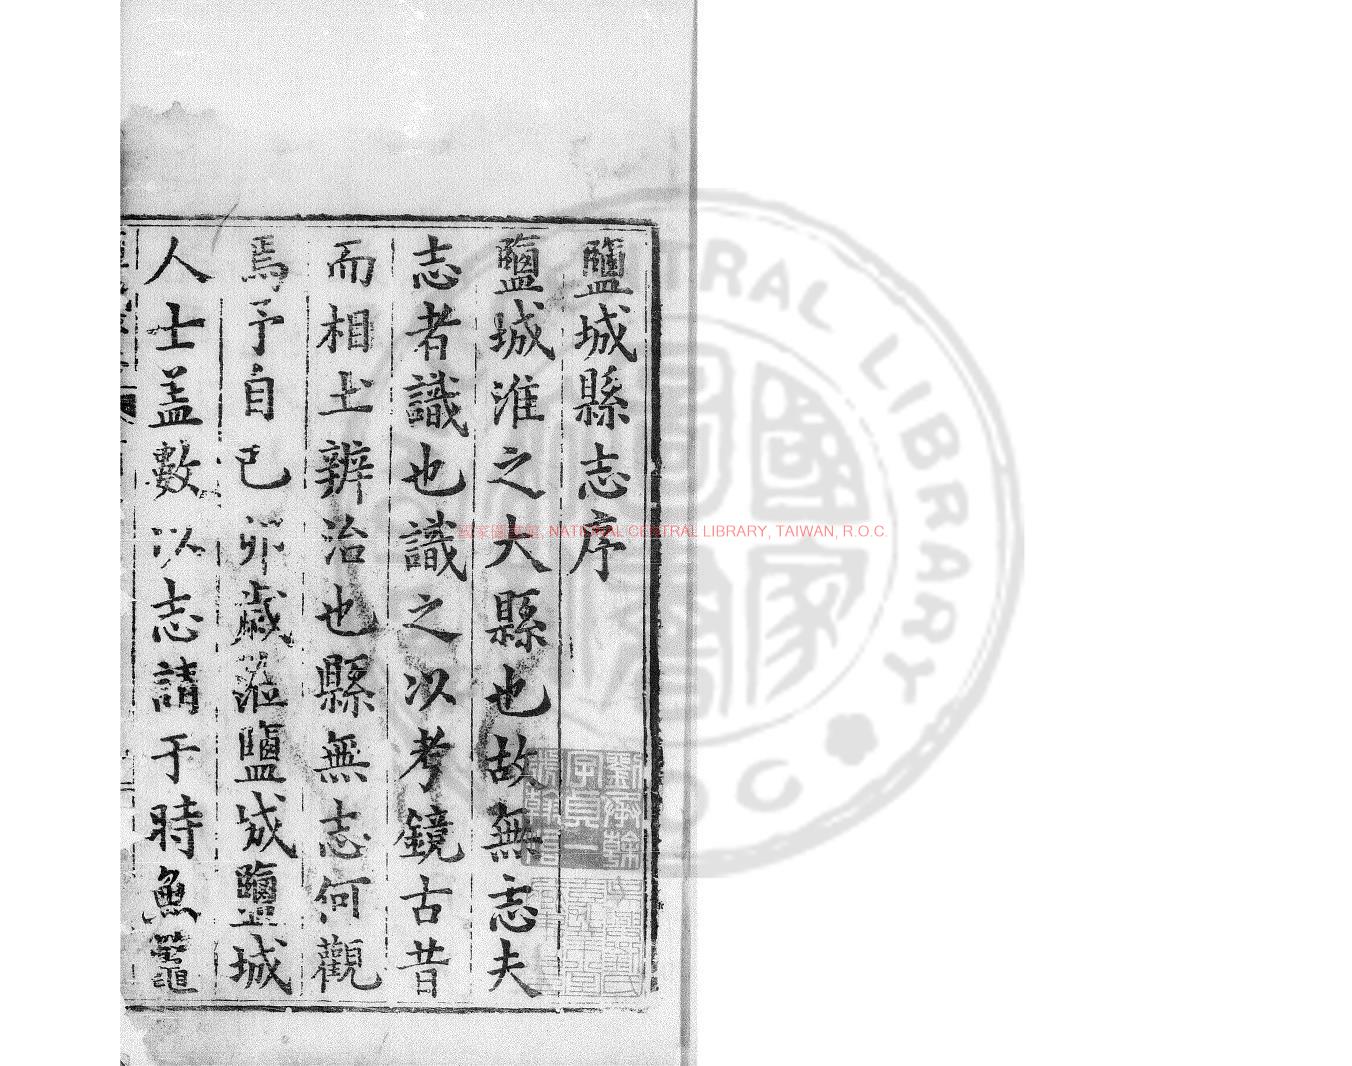 鹽城縣志序
鹽城淮之大縣也故無志夫
志者識也識之以考鏡古昔
而相土辨治也縣無志何觀
焉予自己卯歲蒞鹽城鹽城
人士盖數以志請于時魚鼈
劉承幹
字貞一
國家圖書館, NATIONAL CENTRAL LIBRARY, TAIWAN, R.O.C.
CENTRAL LIBRARY